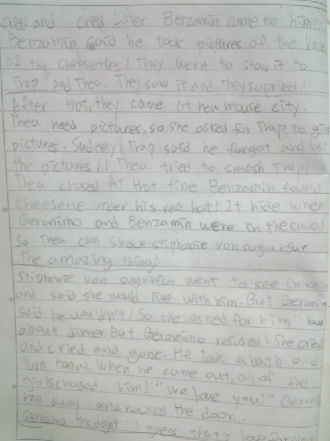 cried and cried Later Benzamin came to him!
Benzamin said he took pictures of the
of the cheesettes! They went to show it to
Trap and Thea. They saw it and they supried!
After that, they came at new mouse city.
Thea need pictures, so she asked for Trap to
pictures. Sudenly, Trap said he forgot and
the pictures!! Thea tried to smash Trap!
Thea chased. At that time Benzamin found
cheesette under his red hat! It hide when
Geronimo and Benzamin were in the cave!
So Thea can show stiphanie von sugarfur
the amazing thing!
Stiphanie von sugarfur went to see
and said she would live with him. But
said he wouldn't! So she asked for him
about dinner. But Geronimo refused! She cried
and cried and gone. He took a bath and
turn When he came out, all of the
girls chused him! "We love you!"
ran away and rocked the door.
thought: I guess that's